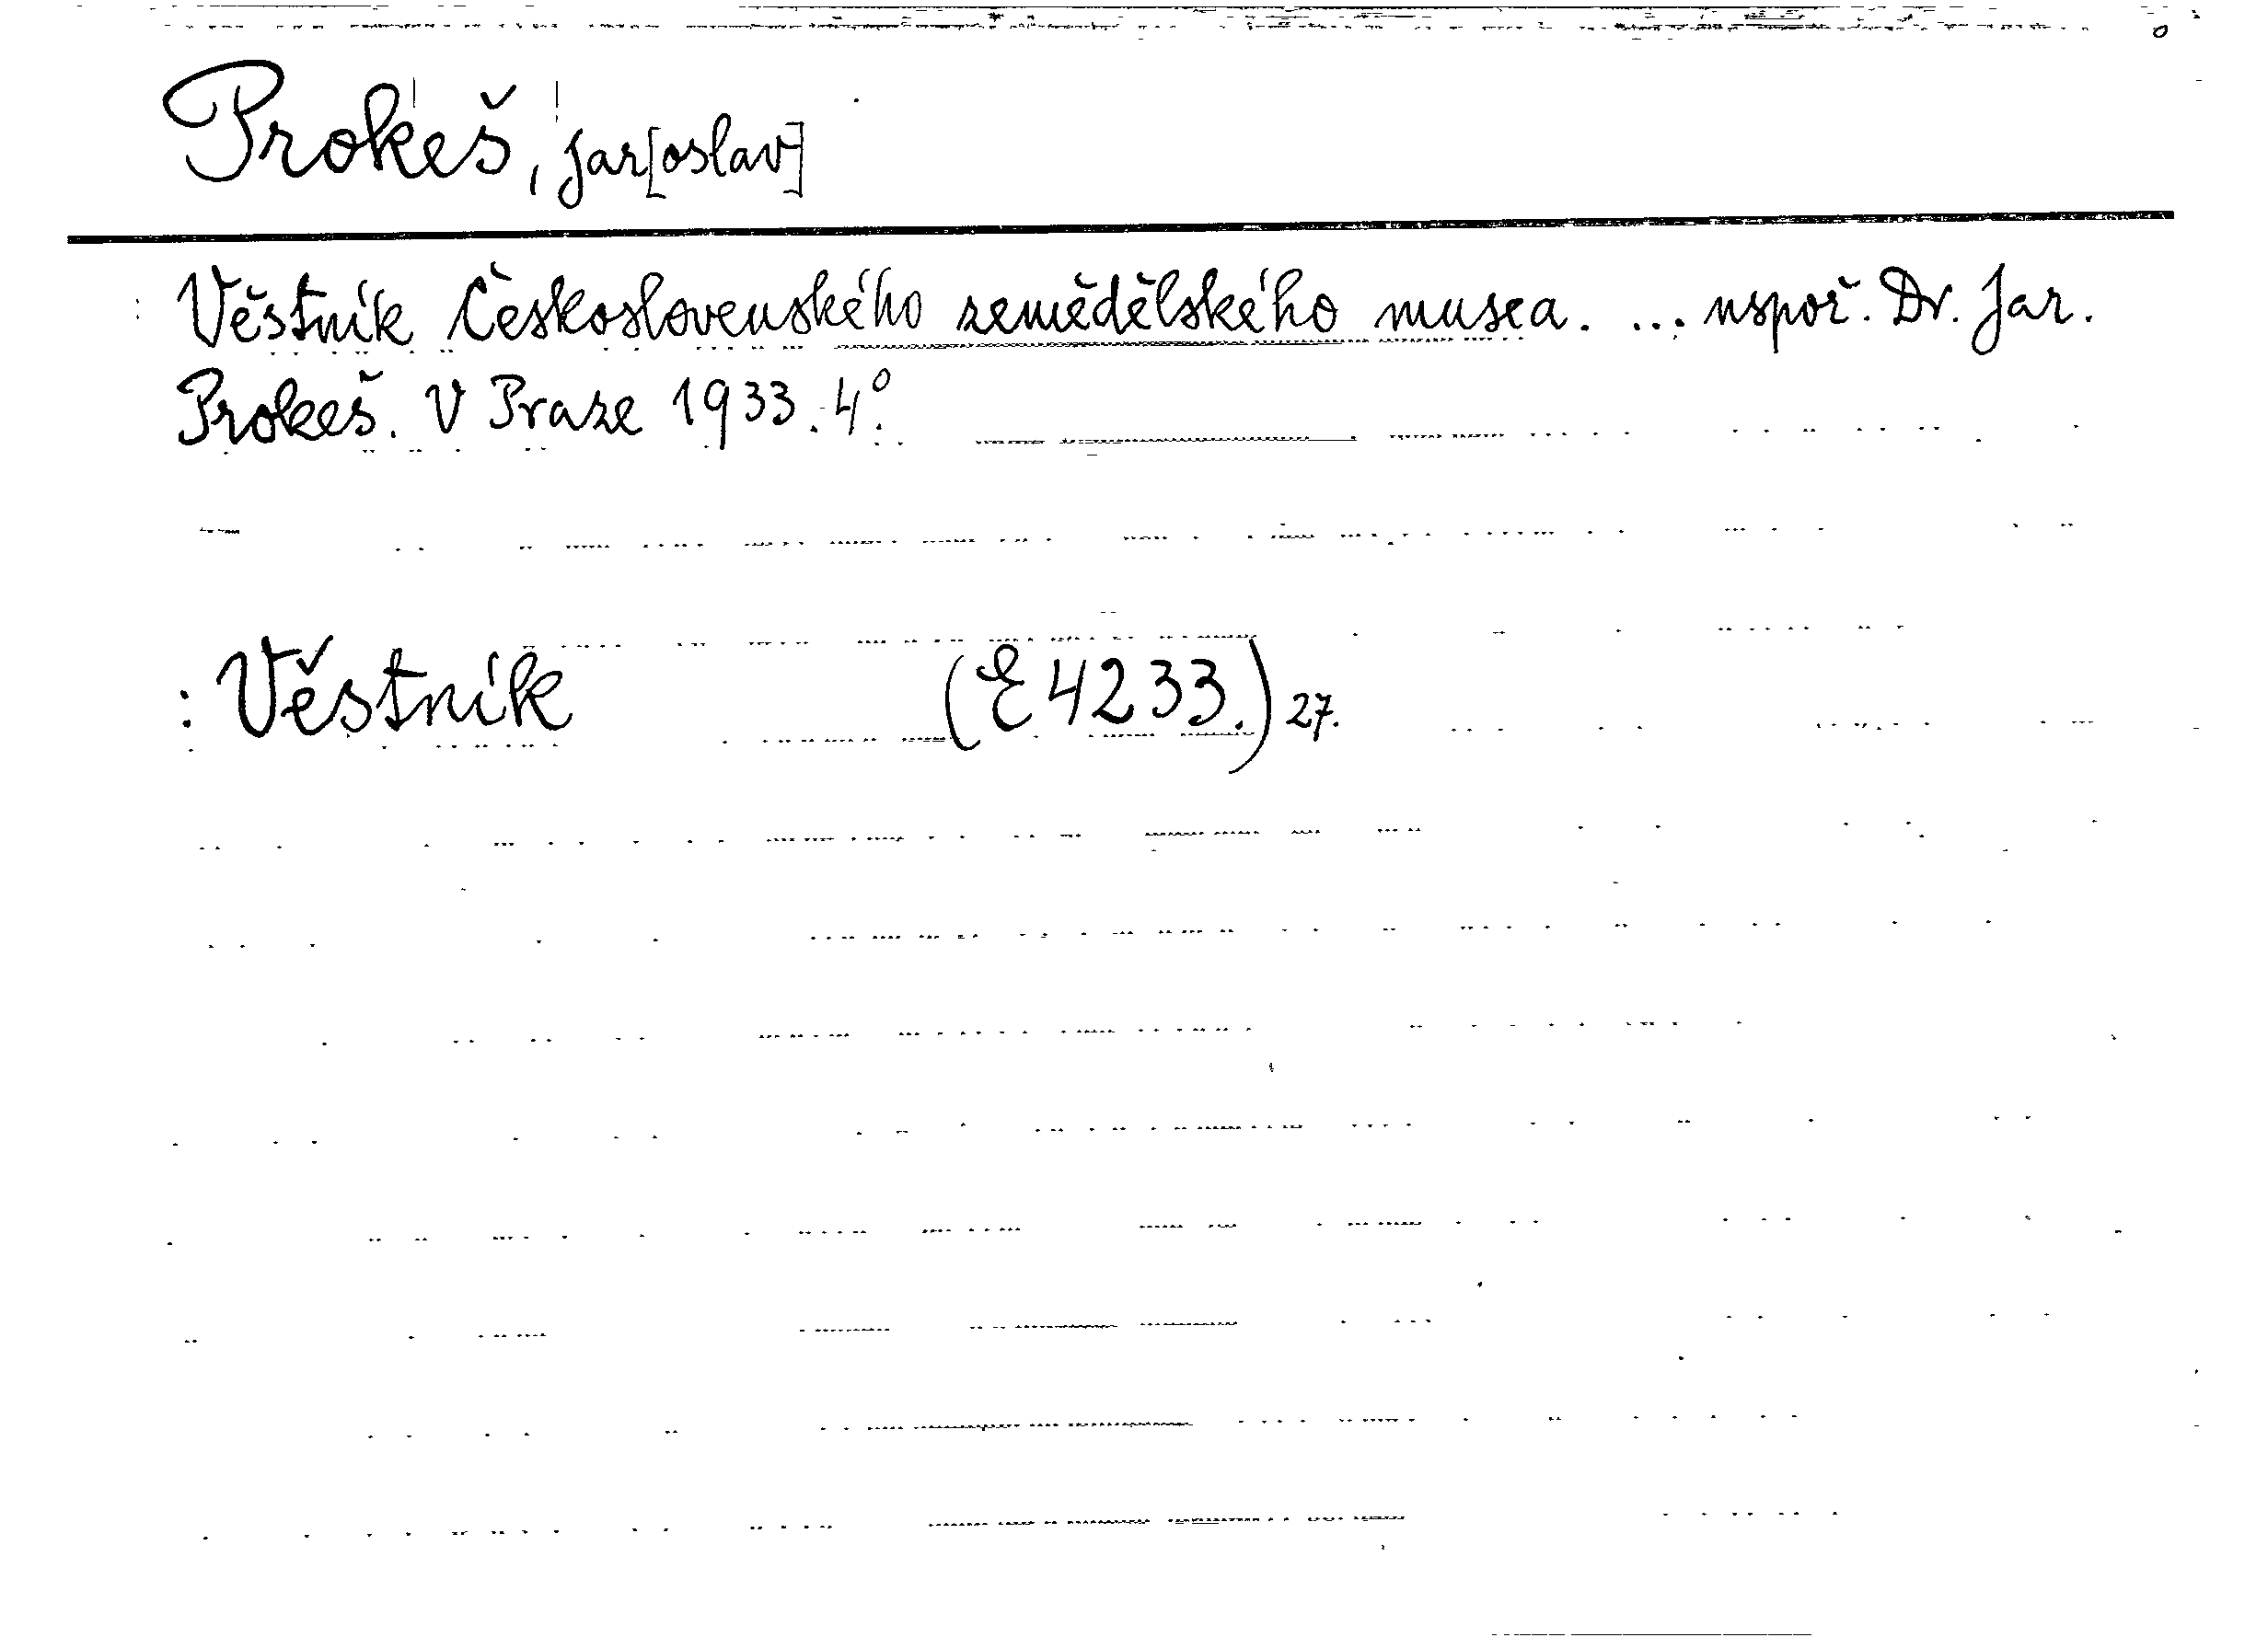 Prokeš, Jar[oslav]
Věstník Československého zemědělského musea. ... uspoř. Dr. Jar.
Prokeš. V Praze 1933. 4°.
: Věstník (E 4233.) 27.